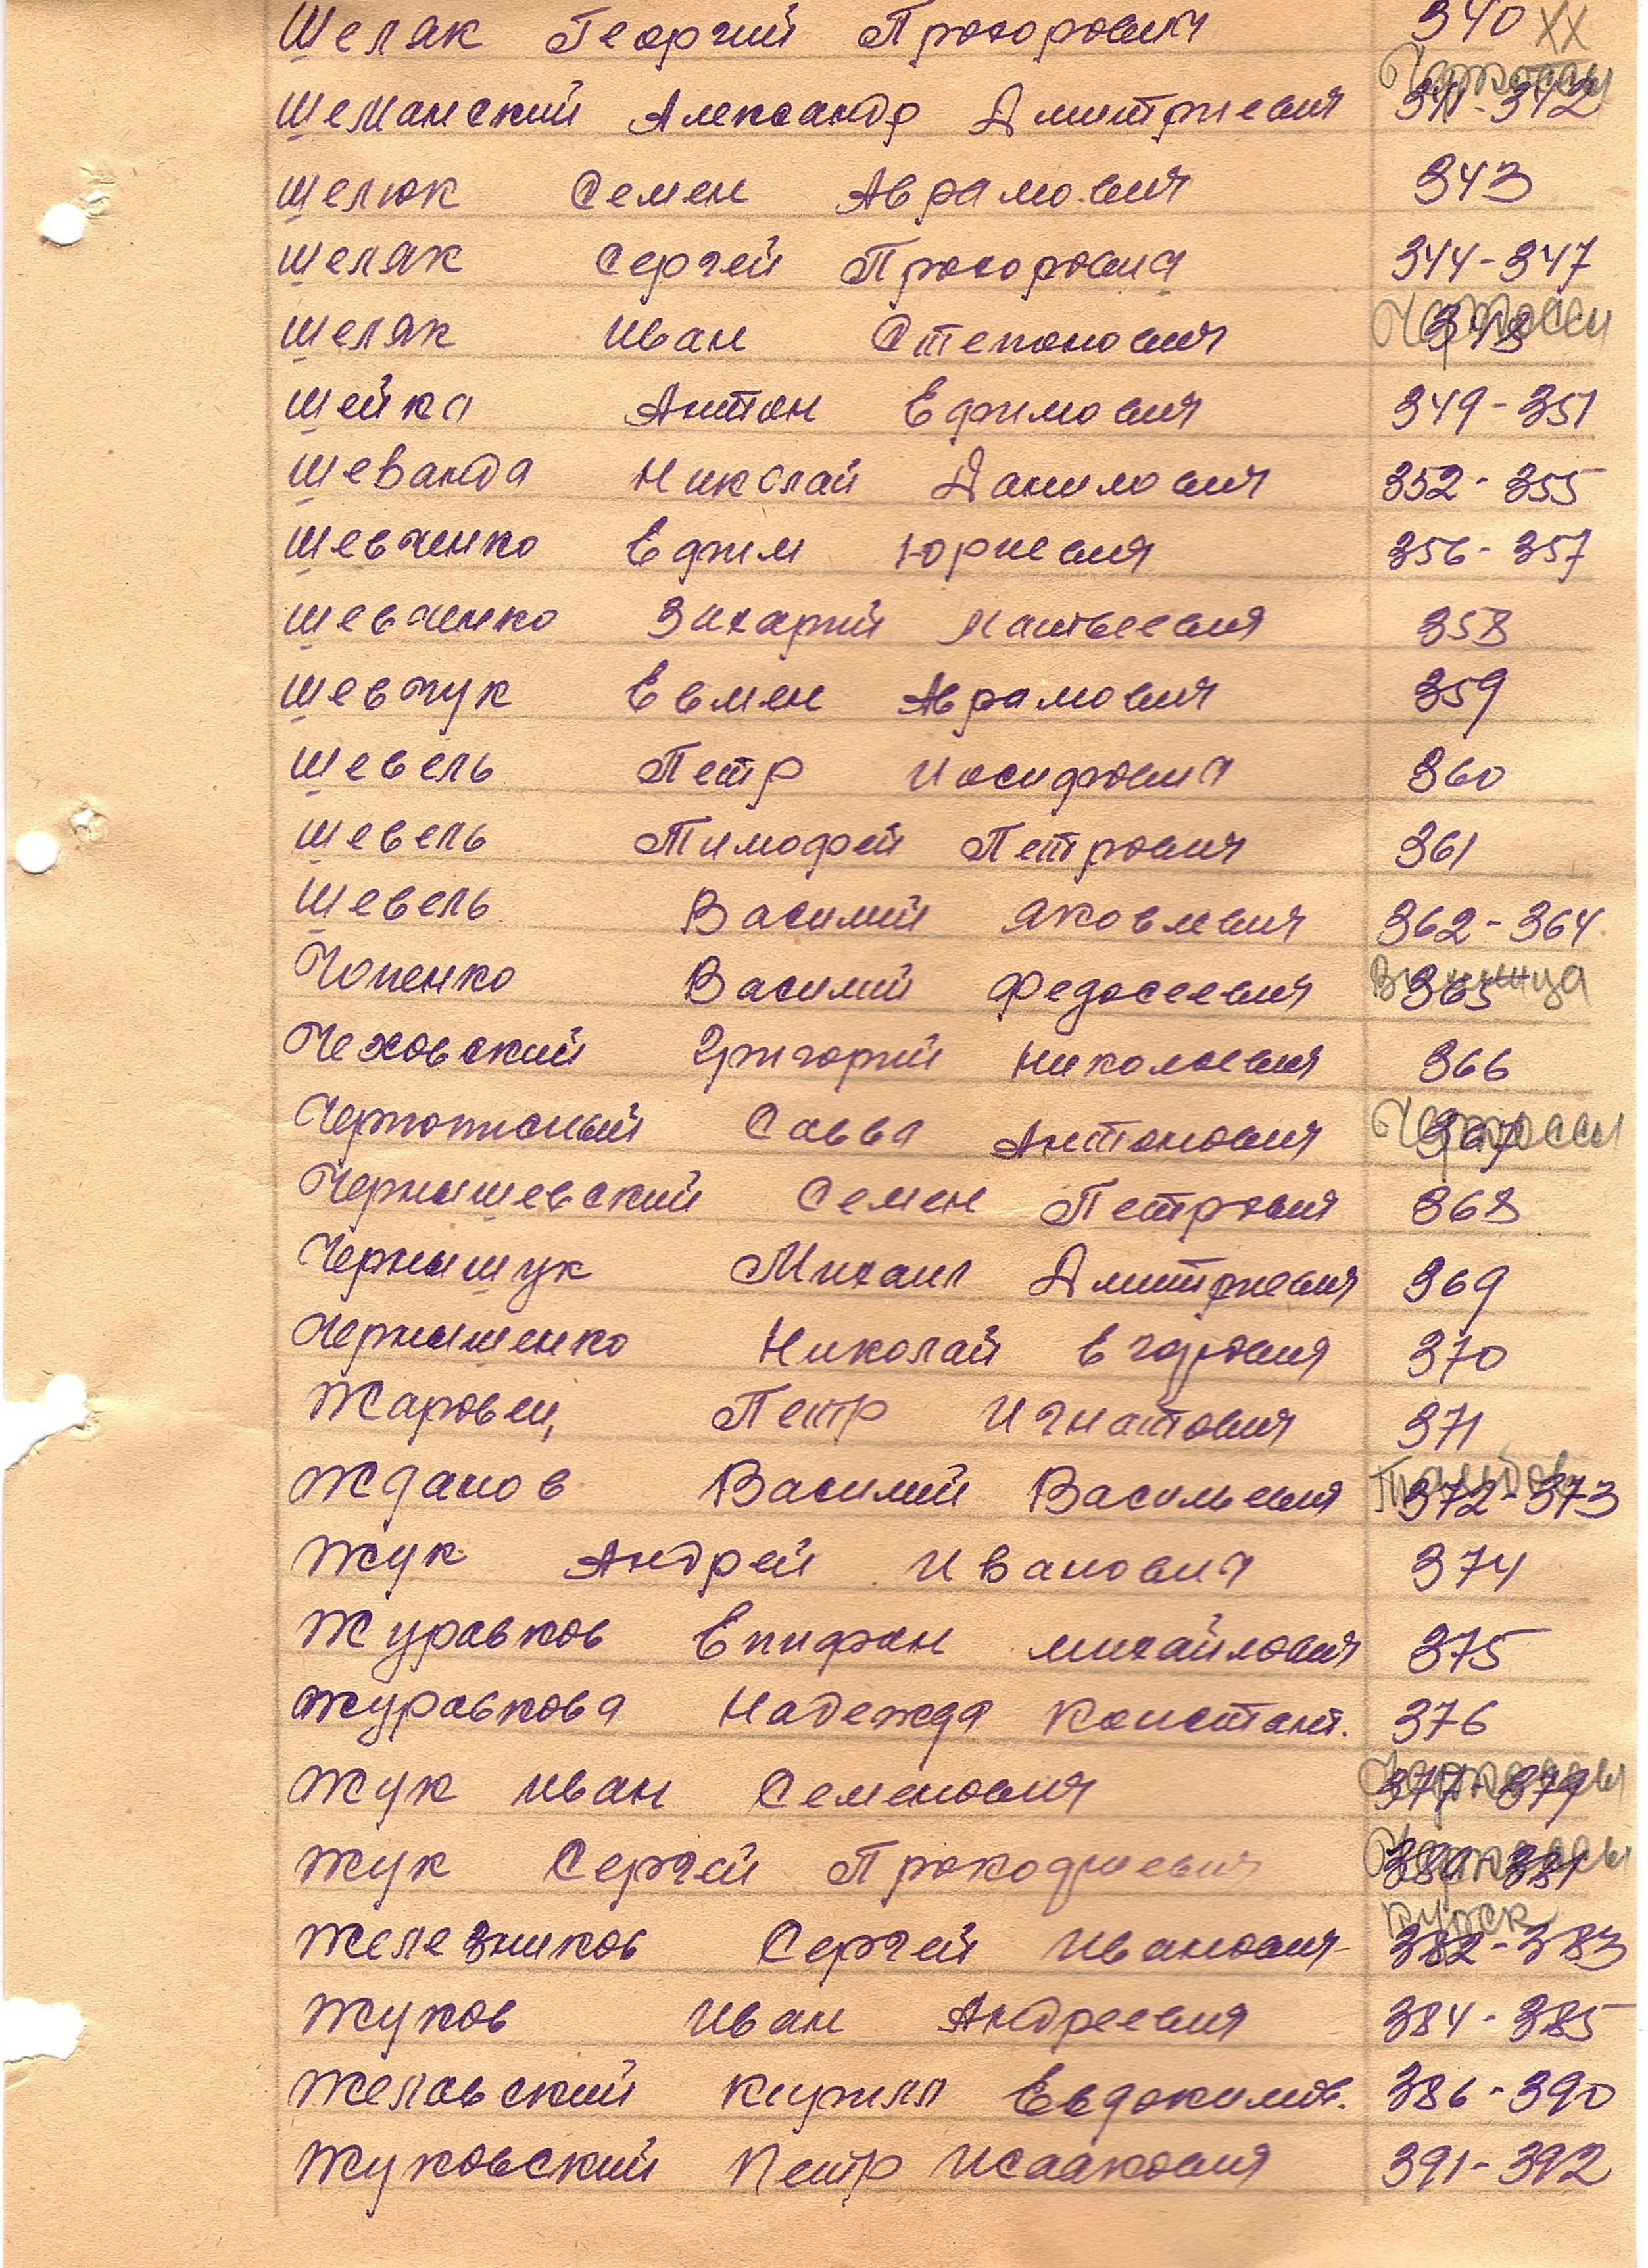 Шеляк Георгий Прохорович 340 ХХ
Черкассы
Шеманский Александр Дмитриевич 341-342
Шелюк Семен Аврамович 343
Шеляк Сергей Прохорович 344-347
Черкассы
Шеляк Иван Степанович 348
Шейка Антон Ефимович 349-351
Шеванда Николай Данилович 352-355
Шевченко Ефим Юриевич 356-357
Шевченко Захарий Матвеевич 358
Шевчук Евмен Аврамович 359
Шевель Петр Иосифович 360
Шевель Тимофей Петрович 361
Шевель Василий Яковлевич 362-364
Винница
Чопенко Василий Федосеевич 365
Чеховский Григорий Николаевич 366
Черкассы
Савва Антонович 367
Чернышевский Семен Петрович 368
Чернышук Михаил Дмитриевич 369
Чернышенко Николай 370
Жаровец Петр Игнатович 371
Тамбов
Жданов Василий Васильевич 372-373
Жук Андрей Иванович 374
Журавков Епифан Михайлович 375
Журавкова Надежда Констант. 376
Черкассы
Жук Иван Семенович 377-379
Черкассы
Жук Сергей Прокофиевич 380-381
Курск
Железников Сергей Иванович 382-383
Жуков Иван Андреевич 384-385
Желавский Кирилл Евдокимов. 386-390
Жуковский Петр Исаакович 391-392